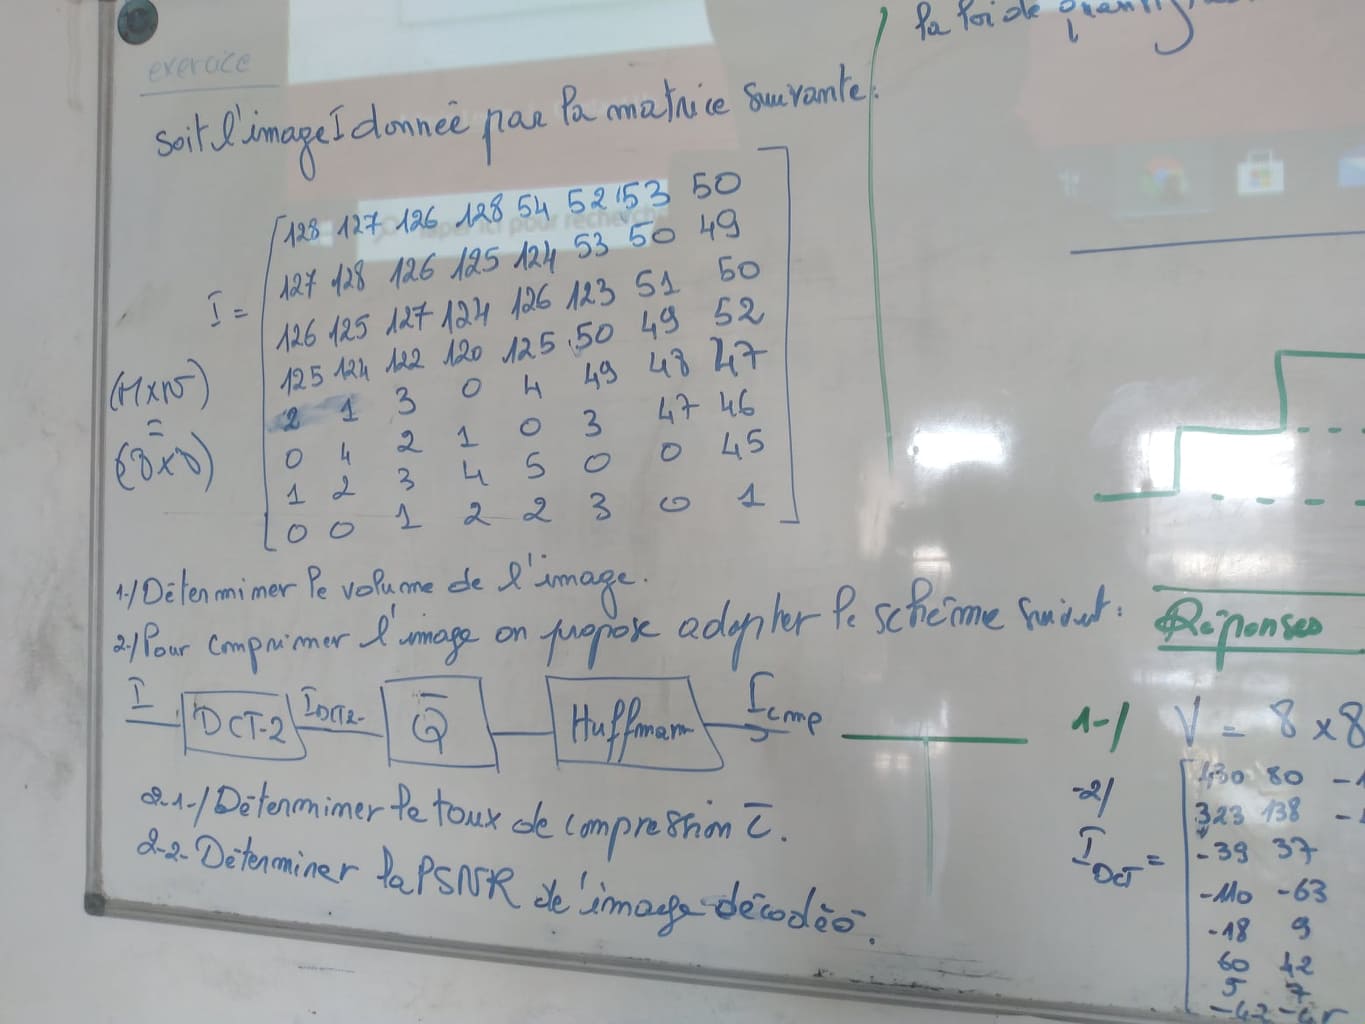 exercice
soit l'image I donnée par la matrice suivante:
I =
128 127 126 128 54 52 53 50
127 128 126 125 124 53 50 49
126 125 127 124 126 123 51 50
125 124 122 120 125 50 49 52
2 1 3 0 4 49 48 47
0 4 2 1 0 3 47 46
1 2 3 4 5 0 0 45
0 0 1 2 2 3 0 1
(M×N)
=
(8×8)
1-/ Déterminer le volume de l'image.
2-/ Pour comprimer l'image on propose adopter le schéme suivant:
I DCT-2 I_DCT2- Q Huffmann I_cmp
2-1-/ Déterminer le taux de compression τ.
2-2- Determiner la PSNR de l'image décodée.
la loi de
Réponses
1-/ V = 8 × 8
-2/
I_DCT =
430 80
323 138
-39 37
-110 -63
-18 9
60 42
5 7